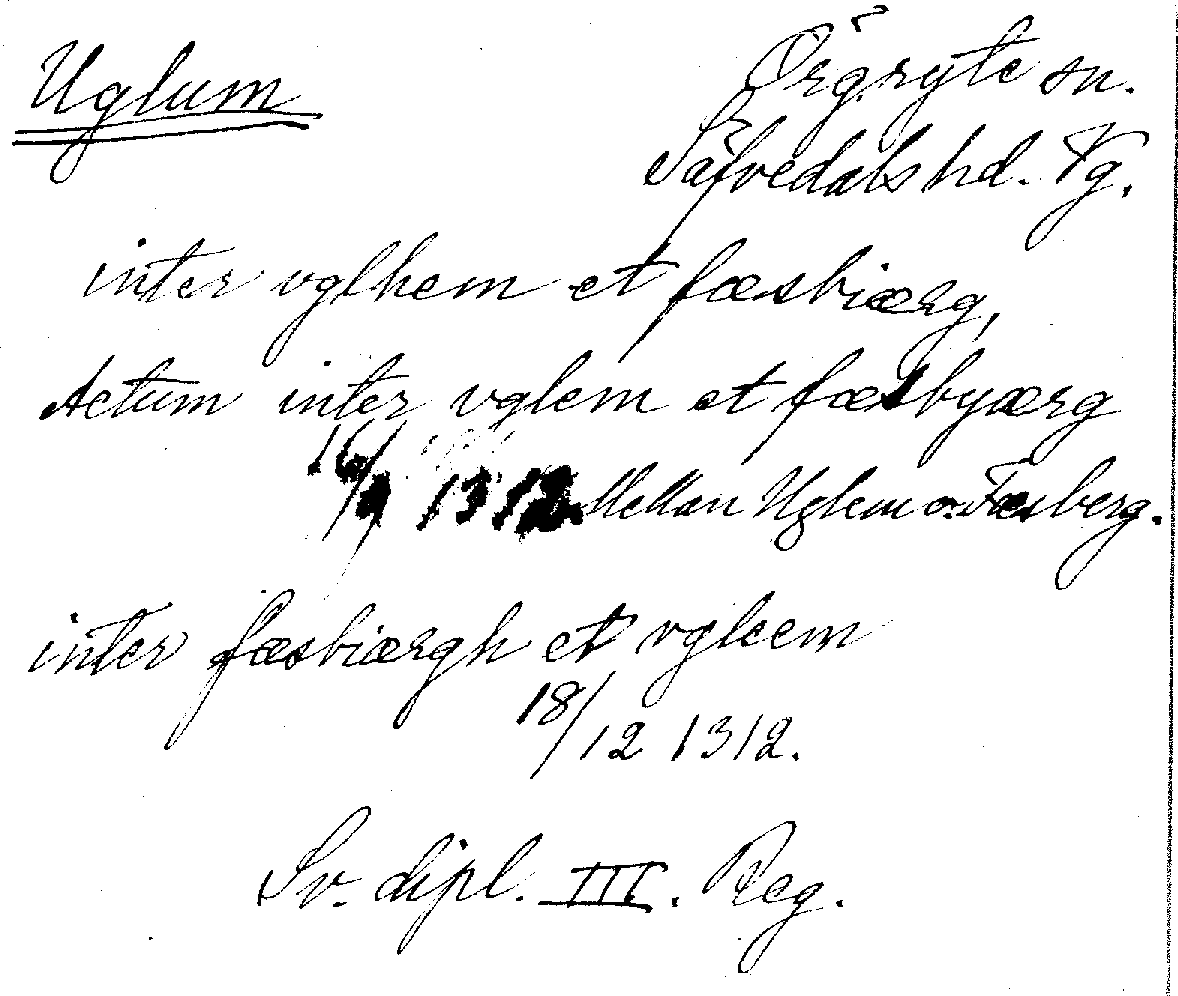 Uglum
Örgryte sn.
Säfvedals hd. Vg.
inter vglhem et fæsbiærg,
Actum inter vglem et fæsbyærg
16/9 1312. Mellan Uglem o. Fæsberg.
inter fæsbiærgh et vgleem
18/12 1312.
Sv. dipl. III. Reg.